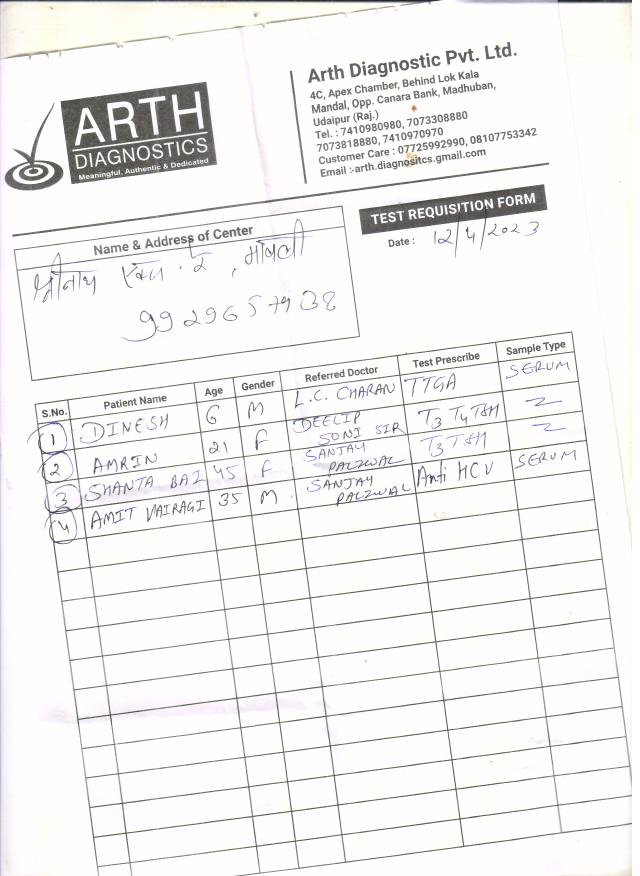 ARTH
DIAGNOSTICS
Meaningful, Authentic & Dedicated
Arth Diagnostic Pvt. Ltd.
4C, Apex Chamber, Behind Lok Kala
Mandal, Opp. Canara Bank, Madhuban,
Udaipur (Raj.)
Tel. : 7410980980, 7073308880
7073818880, 7410970970
Customer Care : 07725992990, 08107753342
Email :-arth.diagnositcs.gmail.com
TEST REQUISITION FORM
Date : 12/4/2023
Name & Address of Center
श्रीनाथ
S.No. Patient Name Age Gender Referred Doctor Test Prescribe Sample Type
1 DINESH 6 M L.C. CHARAN TTGA SERUM
2 AMRIN 21 F DEELIP SONI SIR T3 T4 TSH
3 SHANTA BAI 45 F SANJAY PALIWAL T3 TSH
4 AMIT VAIRAGI 35 M SANJAY PALIWAL Anti HCV SERUM